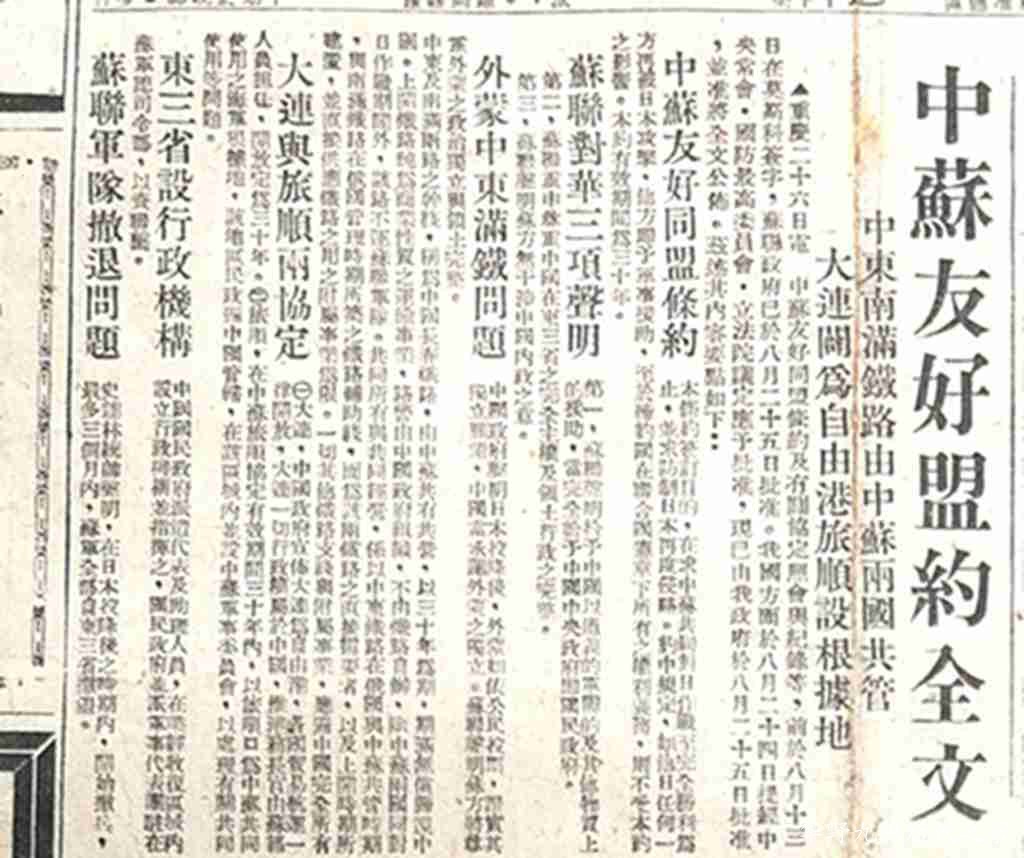 中蘇友好盟約全文
中東南滿鐵路由中蘇兩國共管
大連闢爲自由港旅順設根據地
▲重慶二十六日電 中蘇友好同盟條約及有關協定照會與紀錄等，前於八月十三
日在莫斯科簽字，蘇聯政府已於八月二十五日批准。我國方面於八月二十四日提經中
央常會，國防最高委員會，立法院議定應予批准，現已由我政府於八月二十五日批准
，並准將全文公佈。茲誌其內容要點如下：
中蘇友好同盟條約
本條約簽訂目的，在求中蘇共同對日作戰至完全勝利爲
止，並求防制日本再度侵略。約中規定，如他日任何一
方再被日本攻擊，他方即予軍事援助，至於締約國在聯合國憲章下所有之權利義務，則不受本約
之影響。本約有效期間爲三十年。
蘇聯對華三項聲明
第一，蘇聯聲明給予中國以道義的軍需的及其他物資上
的援助，當完全給予中國中央政府即國民政府。
第二，蘇聯重申尊重中國在東三省之完全主權及領土行政之完整。
第三，蘇聯聲明蘇方無干涉中國內政之意。
外蒙中東滿鐵問題
中國政府聲明日本投降後，外蒙如依公民投票，證實其
獨立願望，中國當承認外蒙之獨立。蘇聯聲明蘇方將尊
重外蒙之政治獨立與領土完整。
中東及南滿兩路之幹綫，稱爲中國長春鐵路，由中蘇共有共營，以三十年爲期，期滿無償歸還中
國。上開鐵路純爲商業性質之運輸事業，路警由中國政府組織，不由鐵路自辦，除中蘇兩國同對
日作戰期間外，該路不運蘇聯軍隊。共同所有與共同經營，係以中東鐵路在俄國與中蘇共管時期
，與南滿鐵路在俄國管理時期所築之鐵路輔助綫，而爲該兩鐵路之直接需要者，以及上開時期所
建置，並直接供應鐵路之用之附屬事業爲限。一切其他鐵路支綫與附屬事業，應爲中國完全所有
大連與旅順兩協定
㊀大連，中國政府宣佈大連爲自由港，各國貿易航運一
律開放，大連一切行政權屬於中國，
人員擔任，開放定爲三十年。㊁旅順，在中蘇旅順協定有效期間三十年內，以旅順口爲中蘇共同
使用之海軍根據地，該地區民政歸中國管轄，在該區域內並設中蘇軍事委員會，以處理有關共同
使用等問題。
東三省設行政機構
中國國民政府派遣代表及助理人員，在業經收復區域內
設立行政機構並指揮之，國民政府並派軍事代表團駐在
蘇軍總司令部，以資聯繫。
蘇聯軍隊撤退問題
史達林統帥聲明，在日本投降後之時期內，開始撤兵，
最多三個月內，蘇軍全部自東三省撤退。